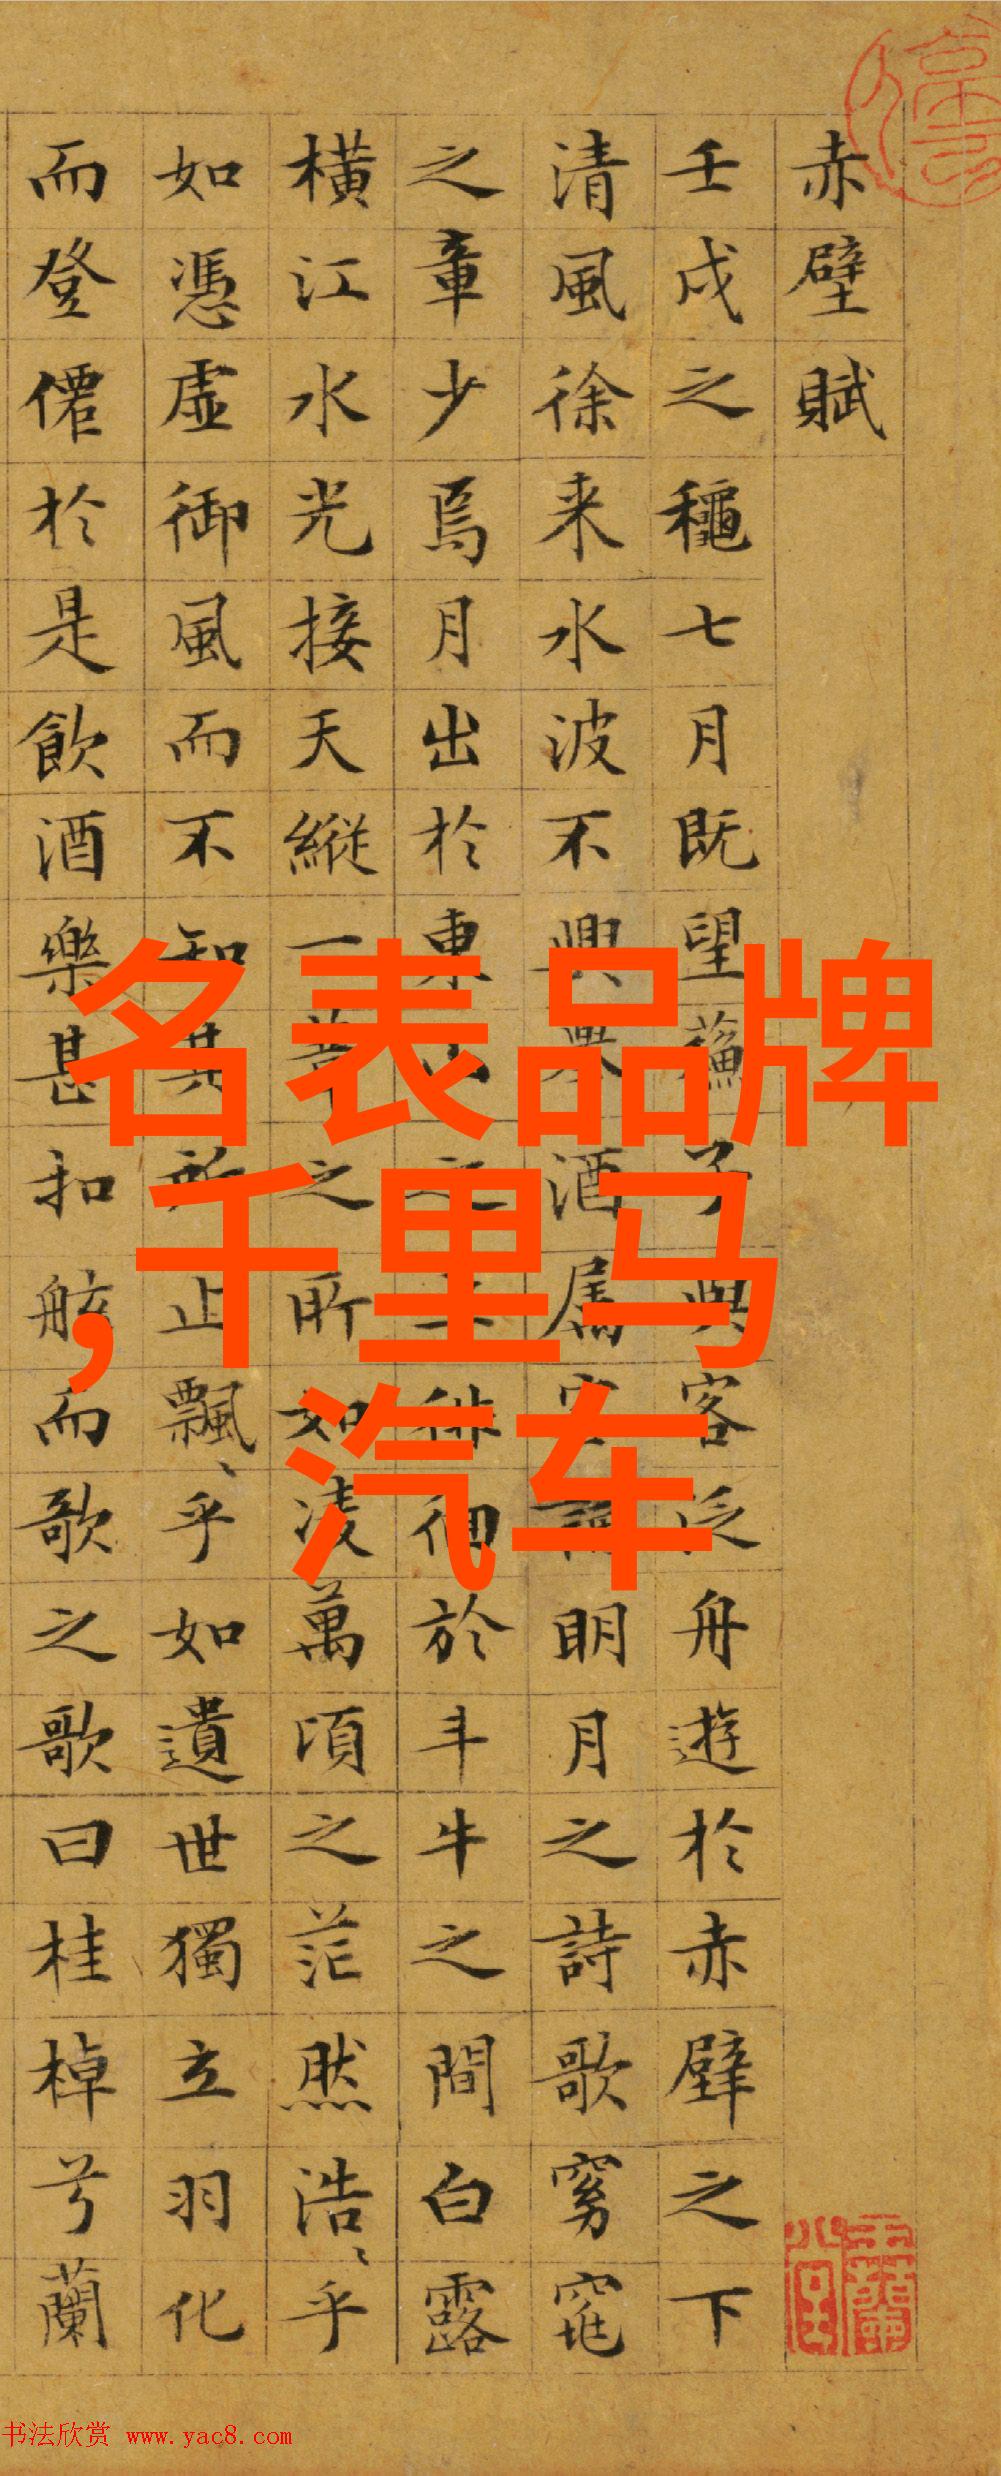 赤壁賦
壬戌之龝七月既望蘇子與客泛舟遊於赤壁之下
清風徐来水波不興舉酒屬客誦明月之詩歌窈窕
之章少焉月出於東山之上徘徊於斗牛之間白露
橫江水光接天縱一葦之所如凌萬頃之茫然浩〻乎
如憑虛御風而不知其所止飄〻乎如遺世獨立羽化
而登僊於是飲酒樂甚扣舷而歌之歌曰桂棹兮蘭
名表品牌
,千里马
汽车
书法欣赏 www.yac8.com